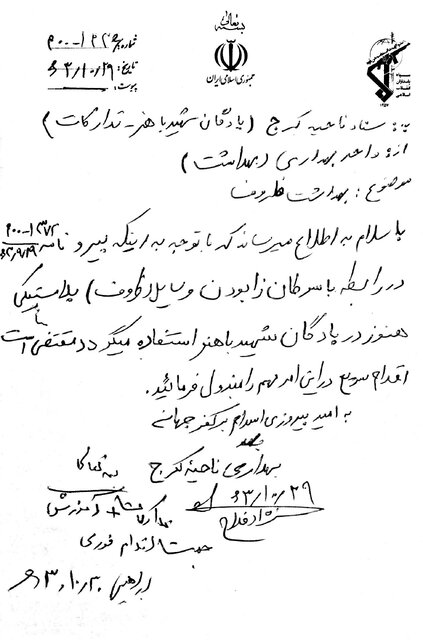 بسمه تعالی
شماره: ۹۰۰-۱۳۲
تاریخ: ۶۳/۱۰/۲۹
پیوست:
جمهوری اسلامی ایران
سپاه پاسداران انقلاب اسلامی
به: ستاد ناحیه کرج (پادگان شهید باهنر - تدارکات)
از: واحد بهداری (بهداشت)
موضوع: بهداشت ظروف
با سلام به اطلاع میرساند که با توجه به اینکه پیرو نامه
در رابطه با سرطان زا بودن وسایل (ظروف) پلاستیکی
هنوز در پادگان شهید باهنر استفاده میگردد مقتضی است
اقدام سریع در این امر مهم را مبذول فرمائید.
به امید پیروزی اسلام بر کفر جهانی
بهداری ناحیه کرج
۶۳/۱۰/۲۹
تدارکات + آموزش
جهت اقدام فوری
۶۳/۱۰/۳۰